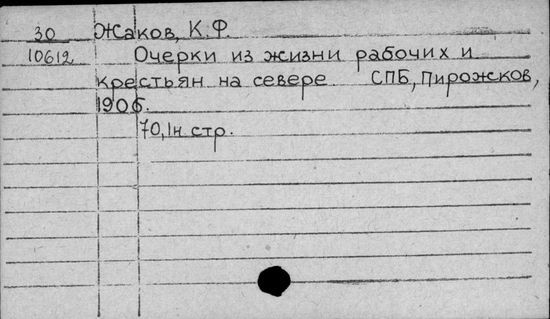 30 Жаков, К.Ф.
10612 Очерки из жизни рабочих и
крестьян на севере СПБ, Пирожков,
1906.
70, 1н. стр.